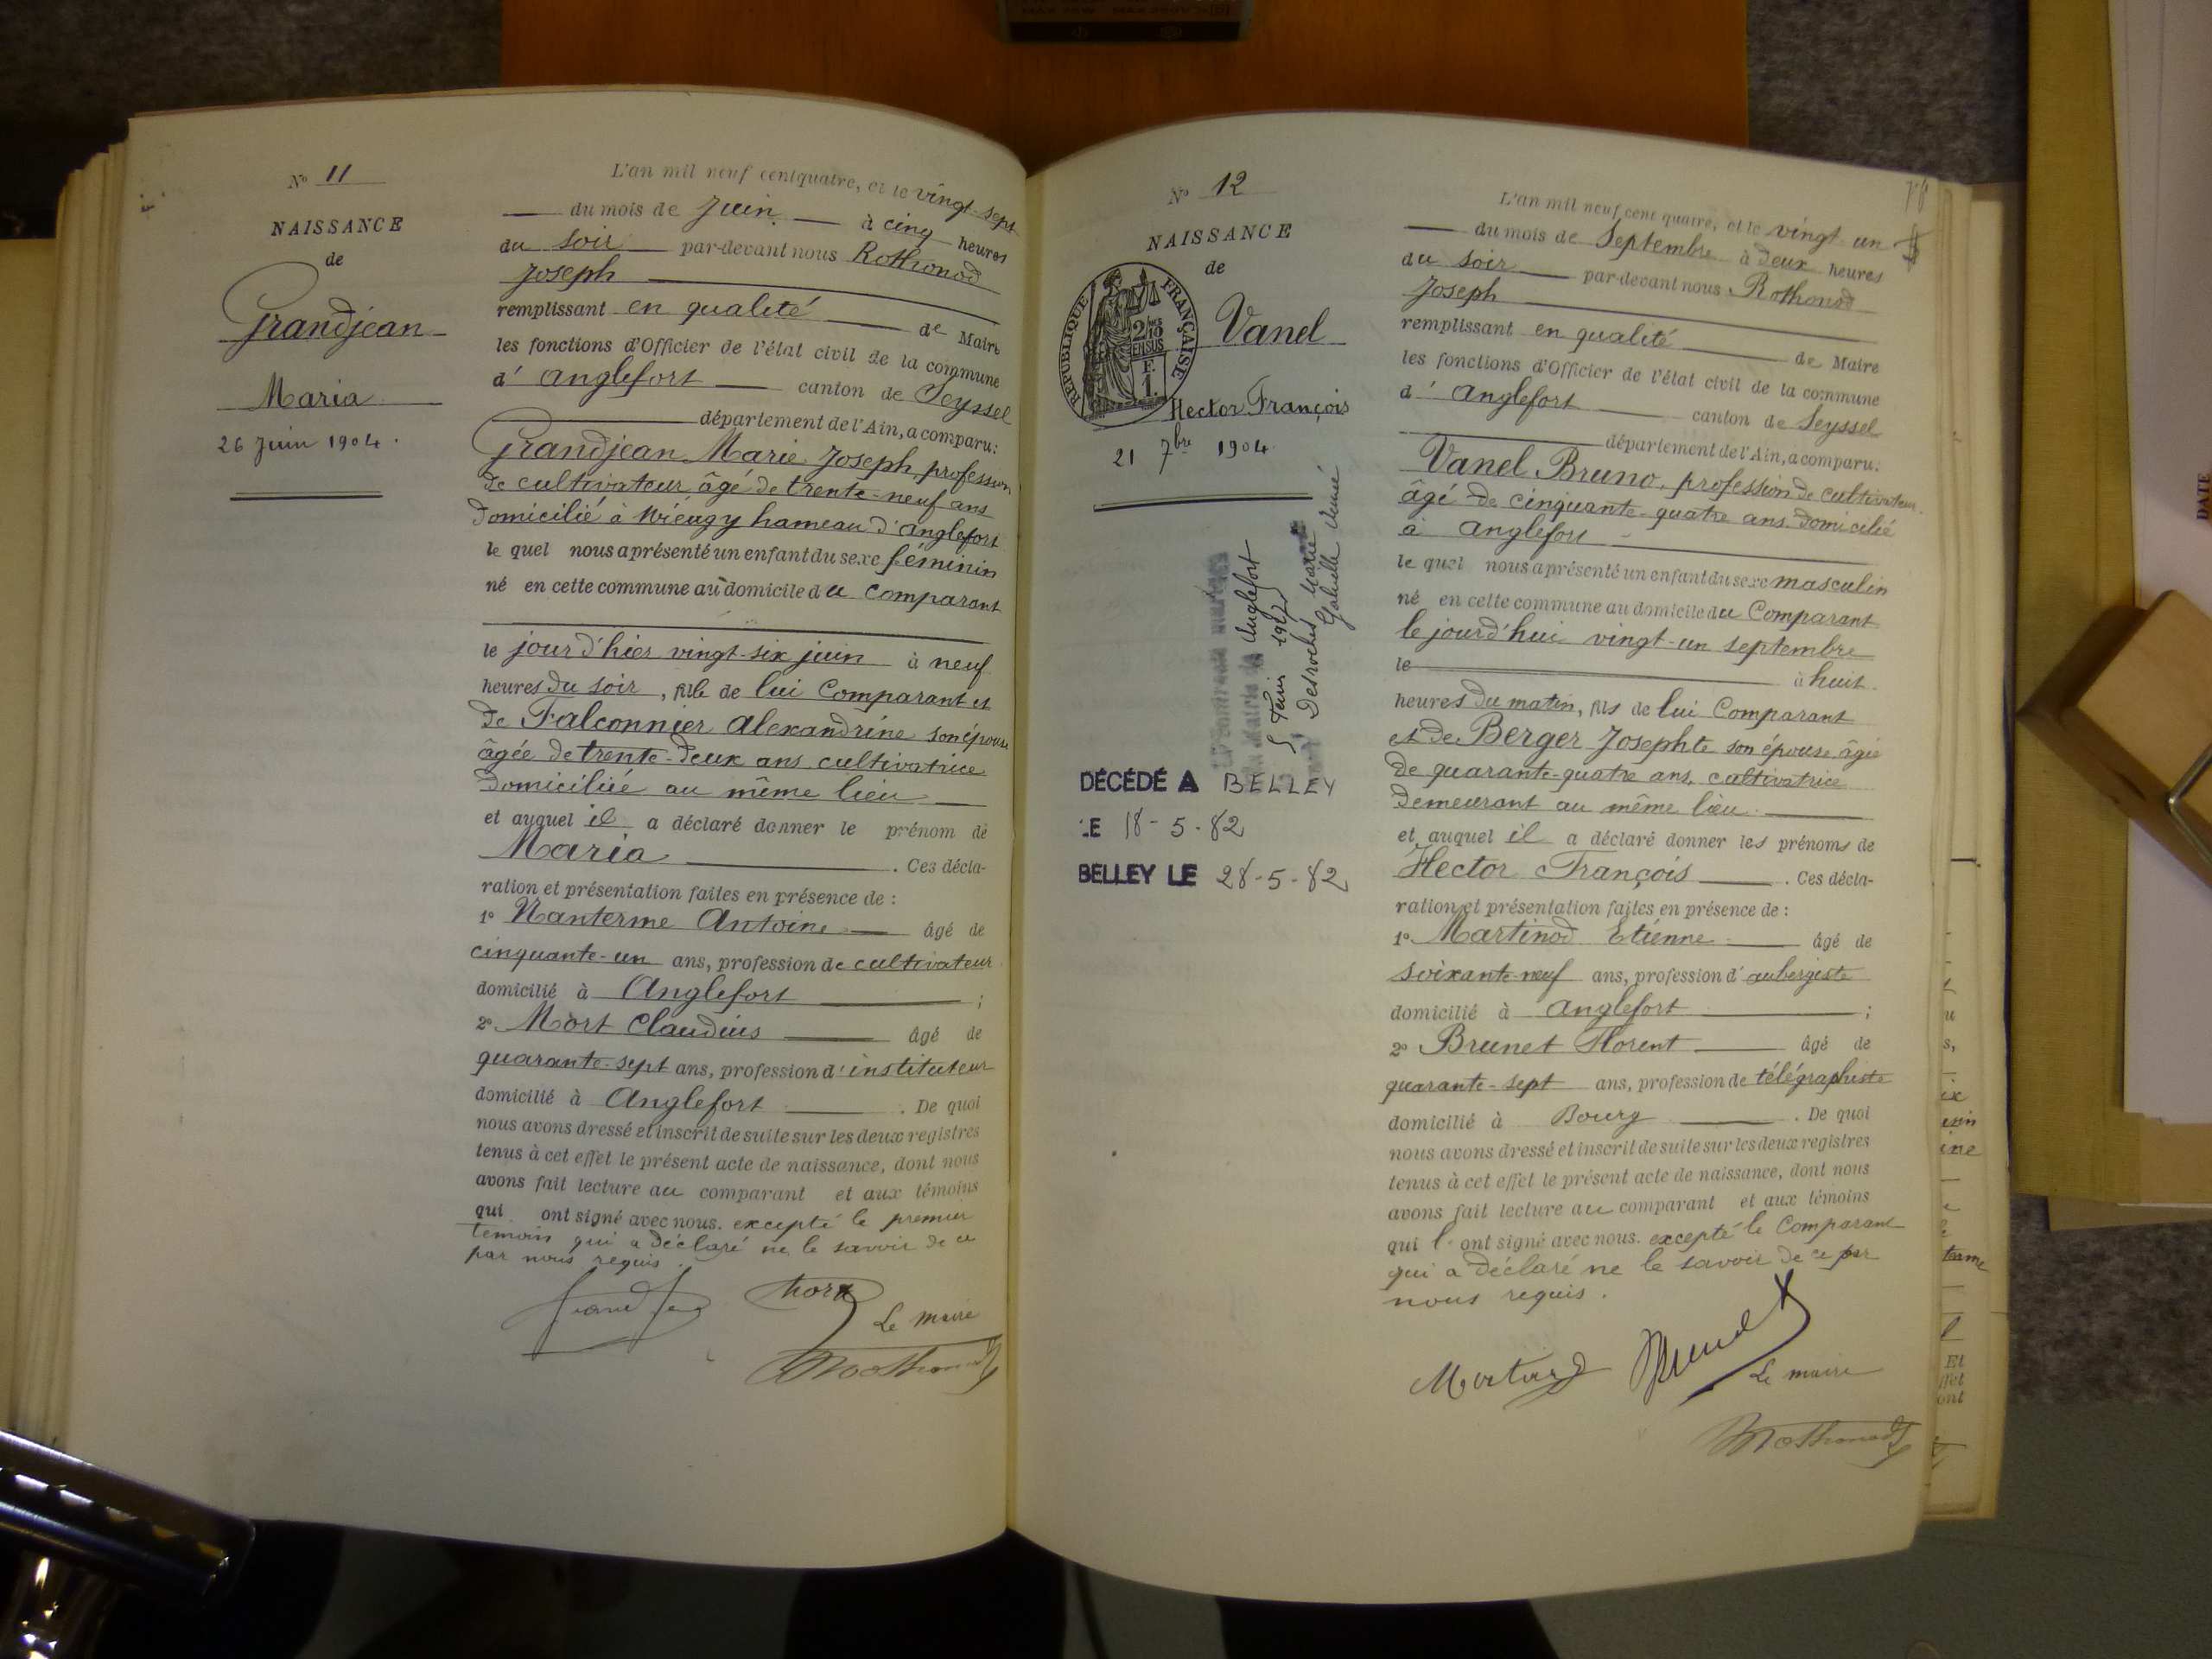 N° 11
NAISSANCE
de
Grandjean
Maria
26 Juin 1904.
L'an mil neuf cent quatre, et le vingt-sept
du mois de Juin à cinq heures
du soir par-devant nous Rothonod
Joseph
remplissant en qualité de Maire
les fonctions d'Officier de l'état civil de la commune
d' Anglefort canton de Seyssel
département de l'Ain, a comparu:
Grandjean Marie Joseph, profession
de cultivateur âgé de trente-neuf ans
domicilié à hameau d'Anglefort
le quel nous a présenté un enfant du sexe féminin
né en cette commune au domicile du Comparant
le jourd'hier vingt-six juin à neuf
heures du soir, fille de lui Comparant et
de Falconnier Alexandrine son épouse
âgée de trente-deux ans cultivatrice
domiciliée au même lieu
et auquel il a déclaré donner le prénom de
Maria . Ces décla-
ration et présentation faites en présence de :
1° Nanterme Antoine âgé de
cinquante-un ans, profession de cultivateur
domicilié à Anglefort ;
2° Mort Claudius âgé de
quarante-sept ans, profession d'instituteur
domicilié à Anglefort . De quoi
nous avons dressé et inscrit de suite sur les deux registres
tenus à cet effet le présent acte de naissance, dont nous
avons fait lecture au comparant et aux témoins
qui ont signé avec nous. excepté le premier
témoin qui a déclaré ne le savoir de ce
par nous requis.
Mort
Le maire
Rothonod
N° 12
NAISSANCE
de
RÉPUBLIQUE FRANÇAISE
2/10 EN SUS
F. 1.
Vanel
Hector François
21 7bre 1904
Anglefort
Juin
Desroches Marie
DÉCÉDÉ A BELLEY
LE 18-5-82
BELLEY LE 28-5-82
L'an mil neuf cent quatre, et le vingt-un
du mois de Septembre à deux heures
du soir par-devant nous Rothonod
Joseph
remplissant en qualité de Maire
les fonctions d'Officier de l'état civil de la commune
d' Anglefort canton de Seyssel
département de l'Ain, a comparu:
Vanel Bruno, profession de cultivateur
âgé de cinquante-quatre ans domicilié
à Anglefort
le quel nous a présenté un enfant du sexe masculin
né en cette commune au domicile du Comparant
le jourd'hui vingt-un septembre
le à huit
heures du matin, fils de lui Comparant
et de Berger Josephte son épouse âgée
de quarante-quatre ans, cultivatrice
demeurant au même lieu.
et auquel il a déclaré donner les prénoms de
Hector François . Ces décla-
ration et présentation faites en présence de :
1° Martinod Etienne âgé de
soixante-neuf ans, profession d'aubergiste
domicilié à Anglefort ;
2° Brunet Florent âgé de
quarante-sept ans, profession de télégraphiste
domicilié à Bourg . De quoi
nous avons dressé et inscrit de suite sur les deux registres
tenus à cet effet le présent acte de naissance, dont nous
avons fait lecture au comparant et aux témoins
qui l'ont signé avec nous. excepté le Comparant
qui a déclaré ne le savoir de ce par
nous requis.
Martinod Brunet
Le maire
Rothonod
DATE